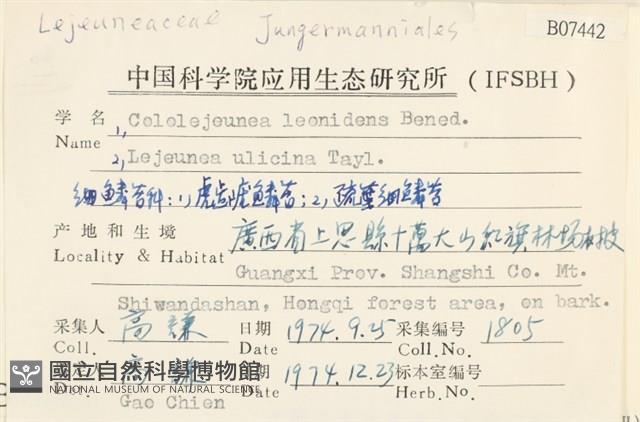 Lejeuneaceae Jungermanniales
B07442
中国科学院应用生态研究所 (IFSBH)
学名 1, Cololejeunea leonidens Bened.
Name
2, Lejeunea ulicina Tayl.
细鱗苔科: 1, 虎齿疣鱗苔; 2, 疏葉细鱗苔
产地和生境 廣西省上思縣十萬大山红旗林场树皮
Locality & Habitat Guangxi Prov. Shangshi Co. Mt.
Shiwandashan, Hongqi forest area, on bark.
采集人 高謙 日期 1974.9.25 采集编号 1805
Coll. Date Coll.No.
人 高謙 期 1974.12.23 标本室编号
國立自然科學博物館
NATIONAL MUSEUM OF NATURAL SCIENCE
Date Herb.No.
Gao Chien